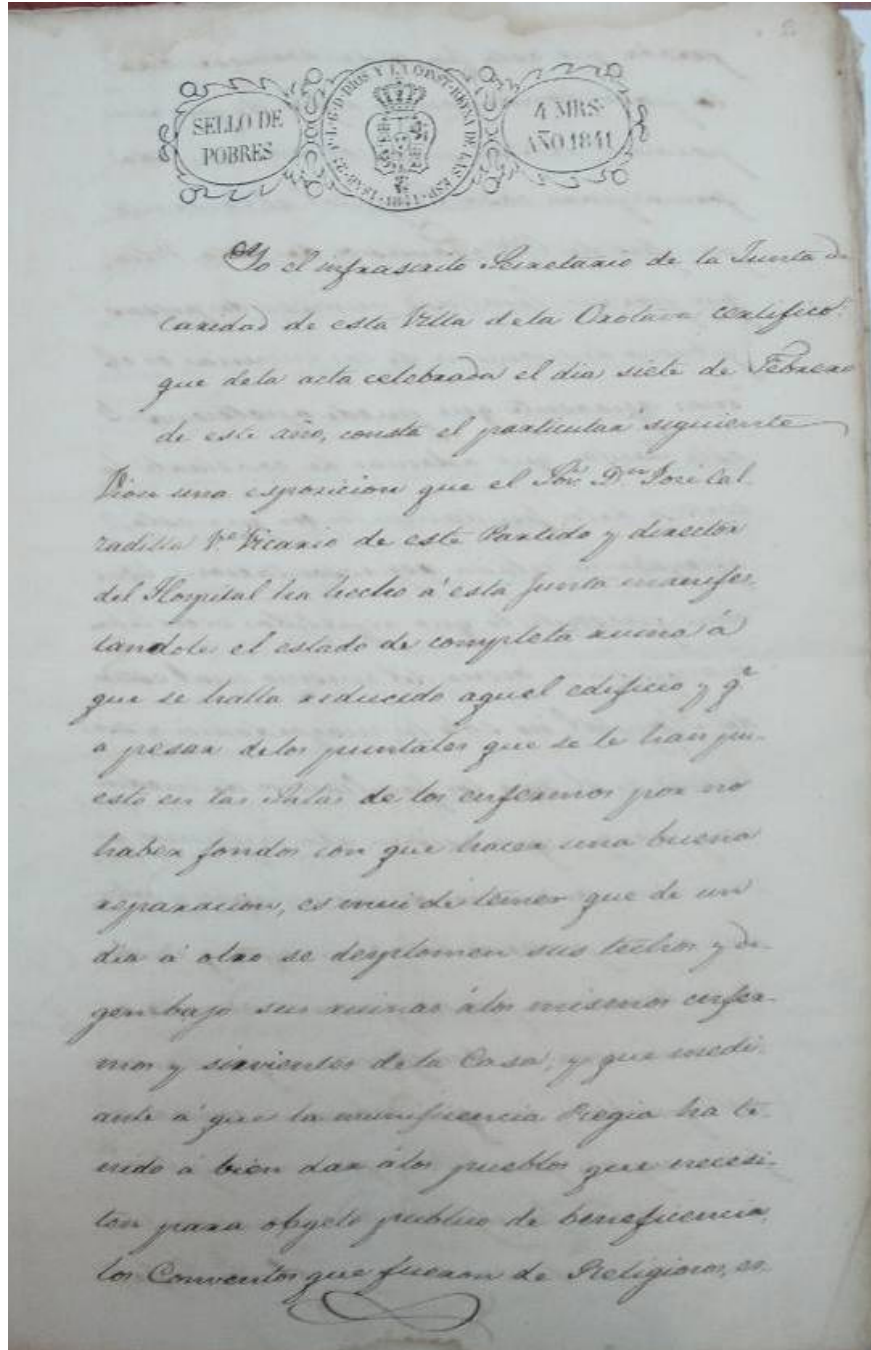 2
SELLO DE
POBRES
ISAB. 2ª P. L. G. D. DIOS Y LA CONST. REYNA DE LAS ESP. 1841
4 MRS.
AÑO 1841
Yo el infrascrito Secretario de la Junta de
caridad de esta Villa dela Orotava certifico:
que dela acta celebrada el dia siete de Febrero
de este año, consta el particular siguiente
una esposicion que el Sõr. Dⁿ José Cal
zadilla Vᵉ Vicario de este Partido y director
del Hospital ha hecho á esta Junta manifes-
tandole el estado de completa ruina á
que se halla reducido aquel edificio y qᵉ
a pesar delos puntales que se le han pu-
esto en las Salas de los enfermos por no
haber fondos con que hacer una buena
reparacion, es mui de temer que de un
dia á otro se desplomen sus techos y de-
gen bajo sus ruinas álos mismos enfer-
mos y sirvientes dela Casa, y que medi-
ante á que la munificencia Regia ha te-
nido á bien dar álos pueblos que necesi-
ten para obgeto publico de beneficencia,
los Conventos que fueron de Religiosos, es-